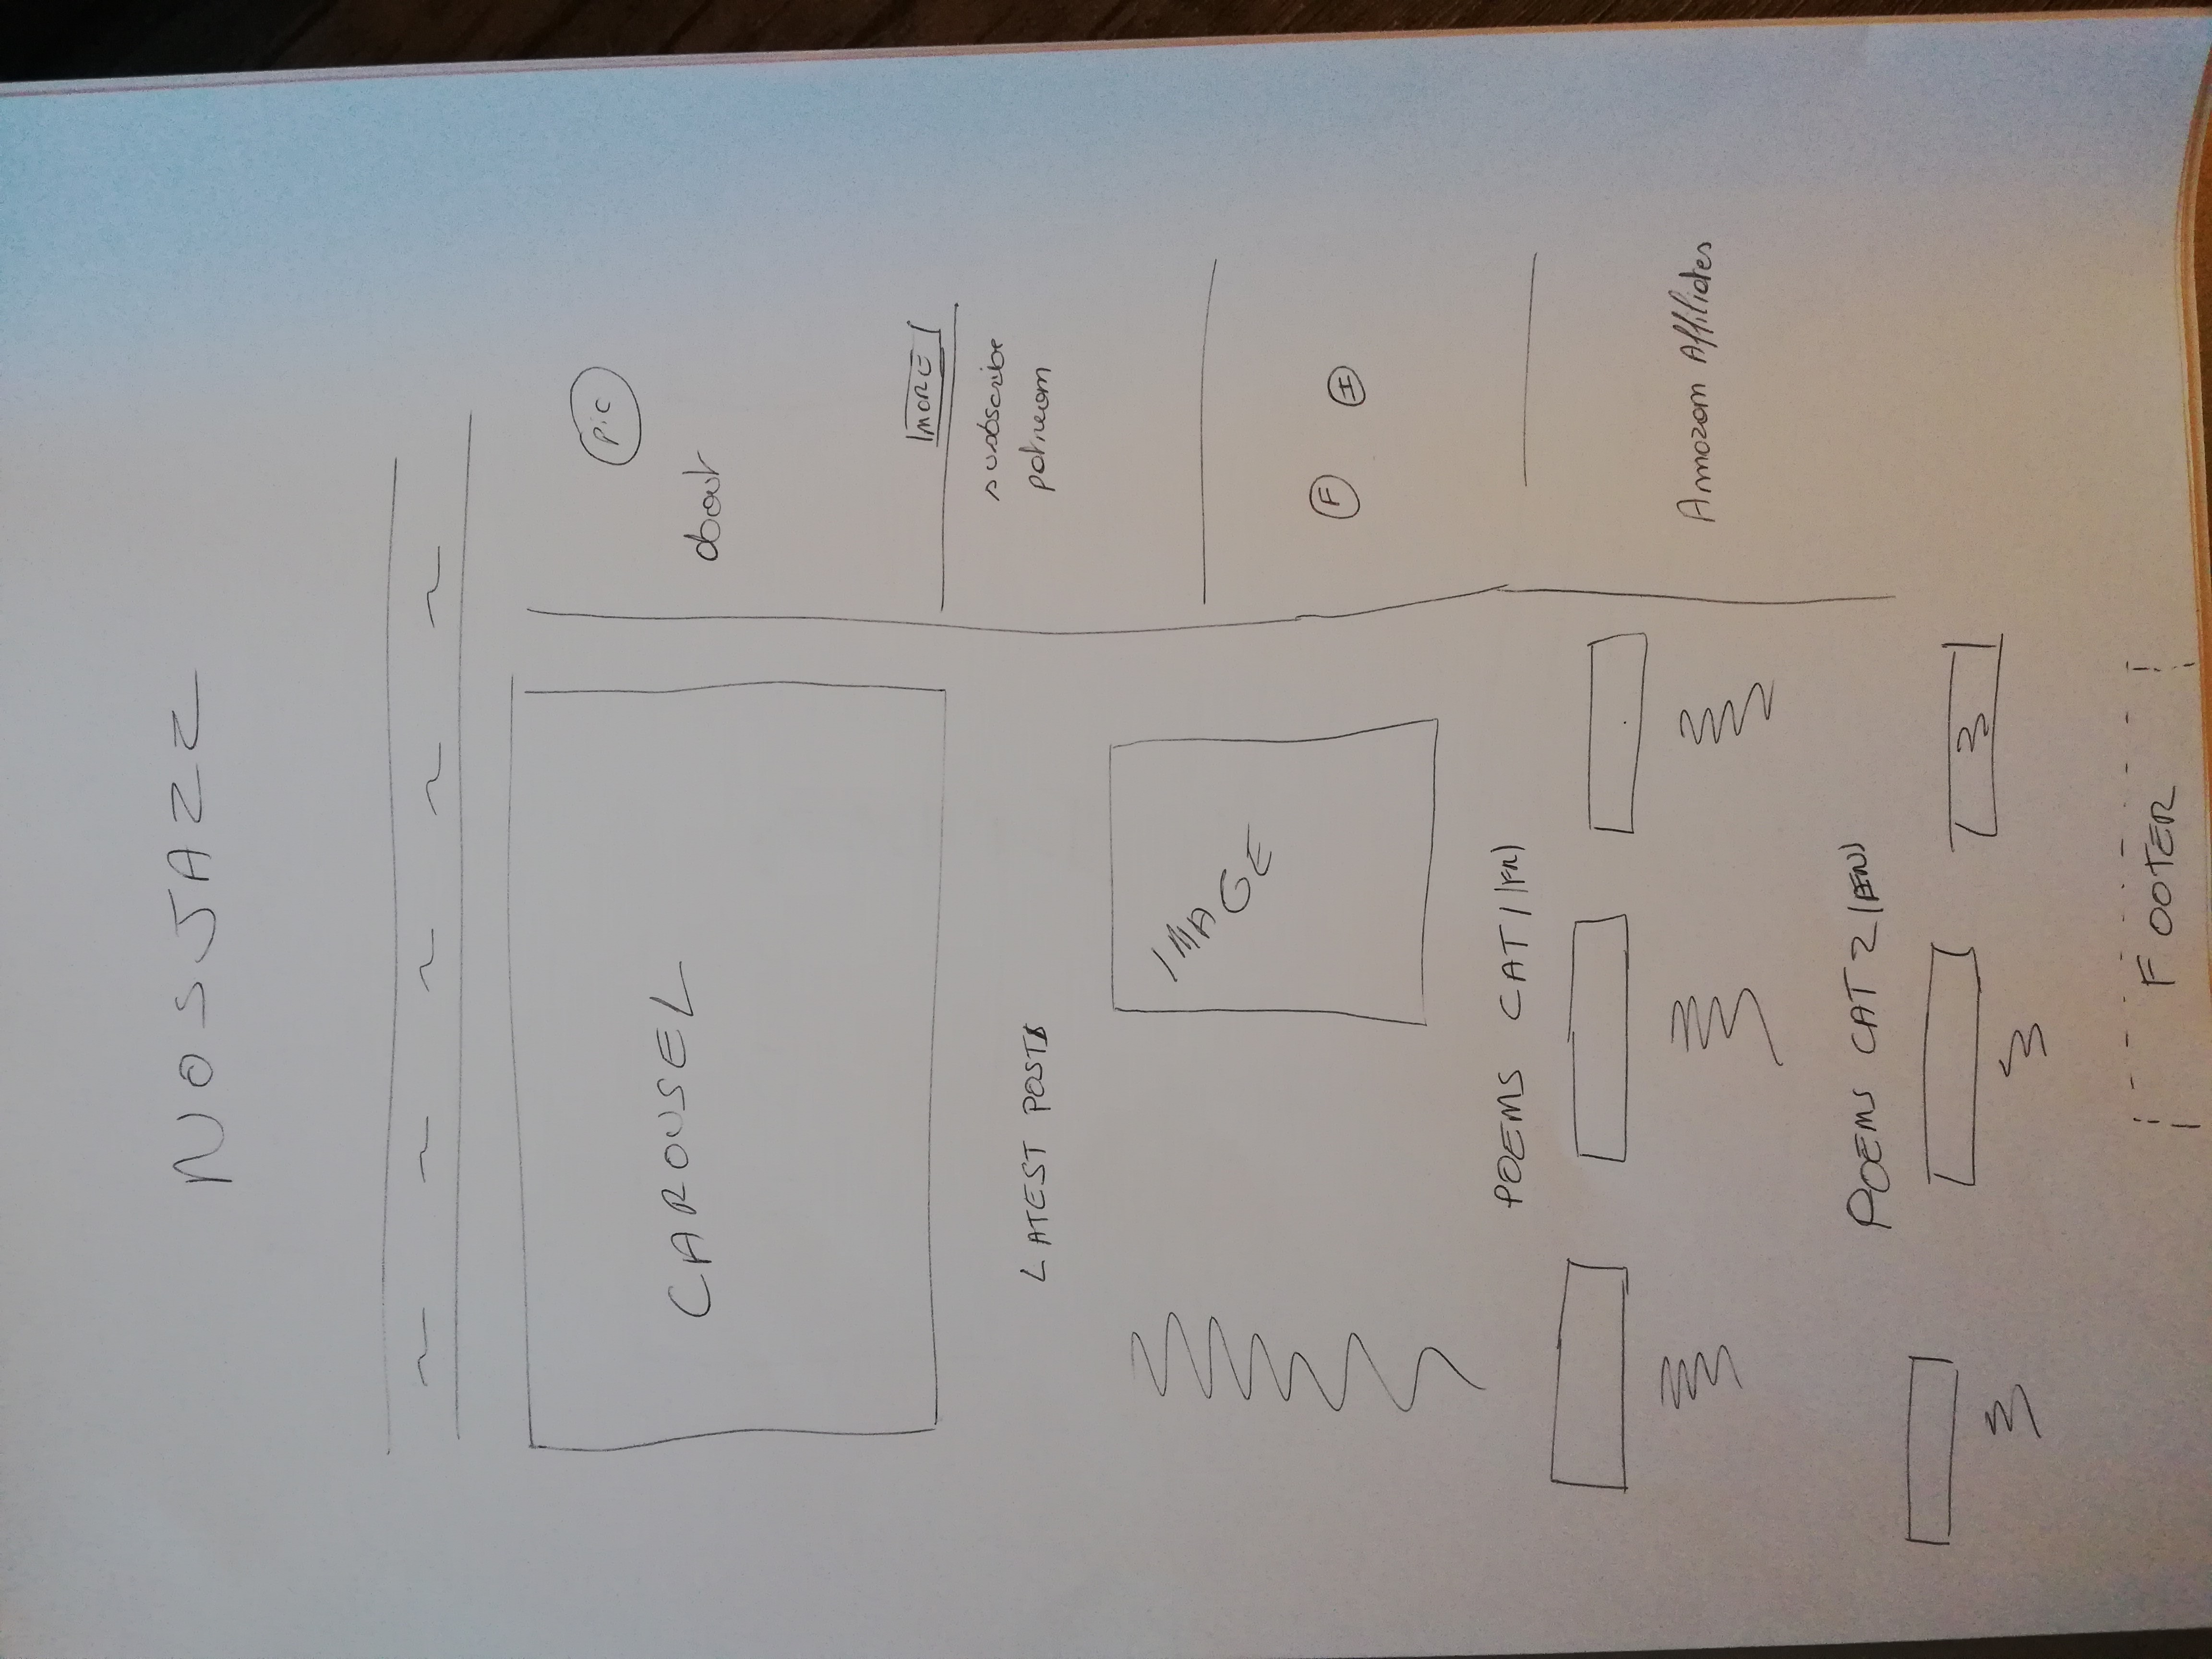 NOSJAZZ
CAROUSEL
LATEST POSTS
IMAGE
POEMS CAT 1 (FR)
POEMS CAT 2 (EN)
FOOTER
Pic
about
MORE
subscribe
F
I
Amazon Affiliates